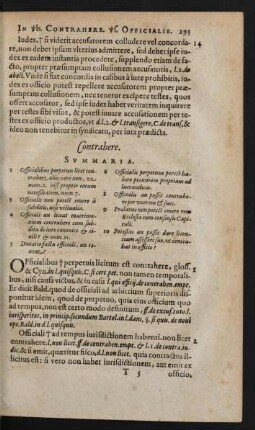 IN Vb. CONTRAHERE. Vſ. OFFICIALIS. 293
Iudex, † ſi viderit accuſatorem colludere vel concorda-
re, non debet ipſum vlterius admittere, ſed debet ipſe iu- 14
dex ex eadem inſtantia procedere, ſupplendo etiam de fa-
cto, propter præſumptam colluſionem accuſatoris, l.2. de
aboli. Vnde ſi ſtat concordia in caſibus à iure prohibitis, in-
dex ex officio poteſt repellere accuſatorem propter præ-
ſumptam colluſionem, nec tenetur excipere teſtes, quos
offert accuſator, ſed ipſe iudex habet veritatem inquirere
per teſtes ſibi viſos, & poteſt iuuare accuſationem per te-
ſtes ex officio productos, vt
ideo non tenebitur in ſyndicatu, per iura prædicta.
Contrahere.
SVMMARIA.
1 Officialibus perpetuis licet con-
trahere, aliis verò non, nu.
num. 2. niſi propter eorum
neceſsitatem. num. 7.
3 Officialis non poteſt emere à
ſubditis, niſi victualia.
4 Officialis an liceat matrimo-
nium contrahere cum ſub-
dita de iure canonico & ci-
uili? & num. 11.
5 Donatio facta officiali, an te-
neat?
6 Officialis perpetuus poteſt ha-
bere pecuniam propriam ad
lucrandum.
8 Officialis an poſsit contrahe-
re per vxorem & ſuos.
9 Prælatus non poteſt emere rem
Eccleſiæ cum conſenſu Capi-
tuli.
10 Poteſtas an poſsit dare bene-
ficium aſſeſſori ſuo, in contra-
hat in officio?
Officialibus † perpetuis licitum eſt contrahere, gloſſ. 1
& Cyn. in l.quiſquis. C. ſi cert. pet. non tamen temporali-
bus, niſi cauſa victus, & in caſu l.qui officij. de contrahen. empt.
Et dicit Bald. quod de officiali ad arbitrium ſuperioris diſ-
ponitur idem, quod de perpetuo, quia eius officium quo
ad tempus, non eſt certo modo definitum, ff. de excuſ. tuto. l.
Bald. in d. l.quiſquis.
Officiali † ad tempus iuriſdictionem habenti. non licet 2
contrahere, l.non licet. ff. de contrahen. empt. & l.1. de contra. iu-
dic. & ſi emit, quatitur hîc o, d. l.non licet. quia contractus il-
licitus eſt: ſi vero non habet iuriſdictionem, aut emit ex
T 5 officio,